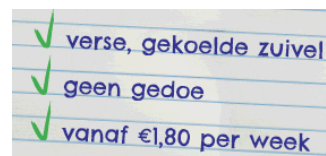 verse, gekoelde zuivel
geen gedoe
vanaf €1,80 per week